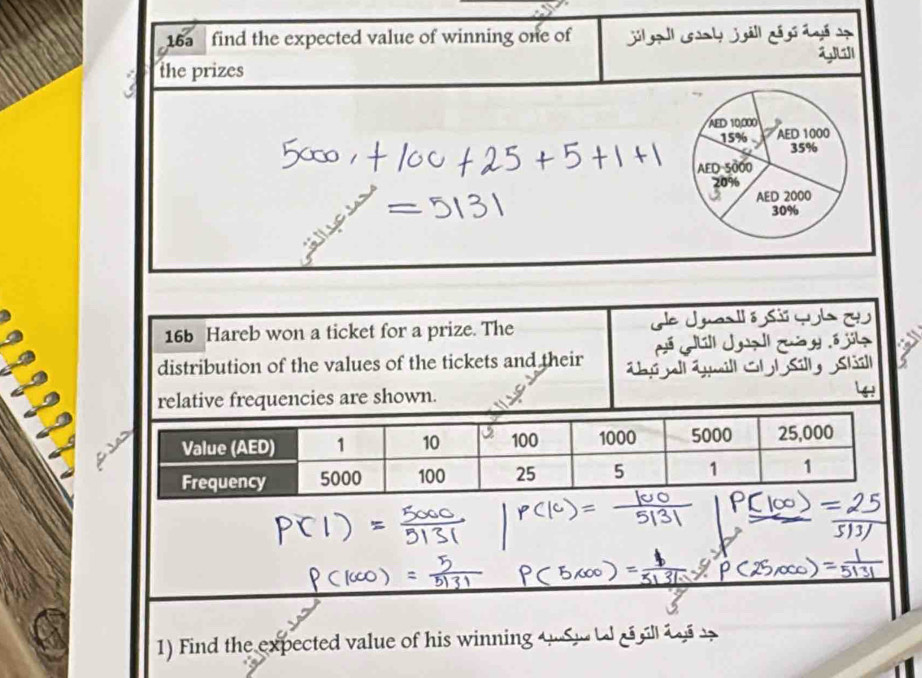 16a find the expected value of winning one of
the prizes
جد قيمة توقع الفوز باحدى الجوائز
التالية
AED 10,000
15%
AED 1000
35%
AED 5000
20%
AED 2000
30%
5000 + 100 + 25 + 5 + 1 + 1
= 5131
16b Hareb won a ticket for a prize. The
distribution of the values of the tickets and their
relative frequencies are shown.
ربح حارب تذكرة للحصول على
جائزة. يوضح الجدول التالي قيم
التذاكر والتكرارات النسبية المرتبطة
بها
Value (AED) 1 10 100 1000 5000 25,000
Frequency 5000 100 25 5 1 1
P(1) = 5000/5131 | P(10) = 100/5131 | P(100) = 25/5131
P(1000) = 5/5131 P(5,000) = 1/5131 P(25,000) = 1/5131
1) Find the expected value of his winning جد قيمة التوقع لما سيكسبه